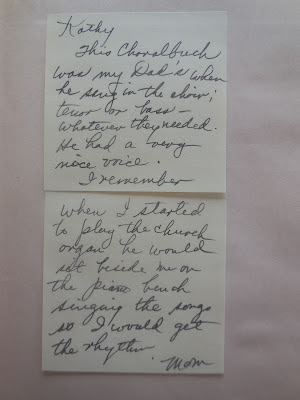 Kathy
This Choralbuch
was my Dad's when
he sang in the choir;
tenor or bass –
whatever they needed.
He had a very
nice voice.
I remember
when I started
to play the church
organ he would
sit beside me on
the piano bench
singing the songs
so I would get
the rhythm.
Mom